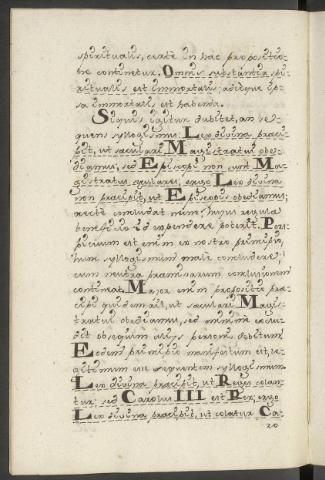 spiritualis, certè in hac propositio-
ne continetur, Omnis substantia spi-
ritualis est immortalis; adeoque ip-
sa immortalis est habenda.
Siquis igitur dubitet, an se-
quens syllogismus: Lex divina praeci-
pit, ut saeculari Magistratui obe-
diamus; sed Episcopi non sunt Ma-
gistratus saeculares; ergo Lex divina
non praecipit, ut Episcopis obediamus;
rectè concludat nimi, hujus regulae
beneficio id expendere poterit. Pers-
picuum est enim ex nostro principio,
hunc syllogismum malè concludere;
cum neutra praemissarum conclusionem
contineat. Major enim propositio prae-
cipi quidem ait, ut saeculari Magis-
tratui obediamus, sed minimè exclu-
dit obsequium aliis personis debitum.
Eodem principio manifestum est, le-
gitimum esse sequentem syllogismum:
Lex divina praecipit, ut Reges colan-
tur; sed Carolus III est Rex; ergo
Lex divina praecipit, ut colatur Ca-
ro